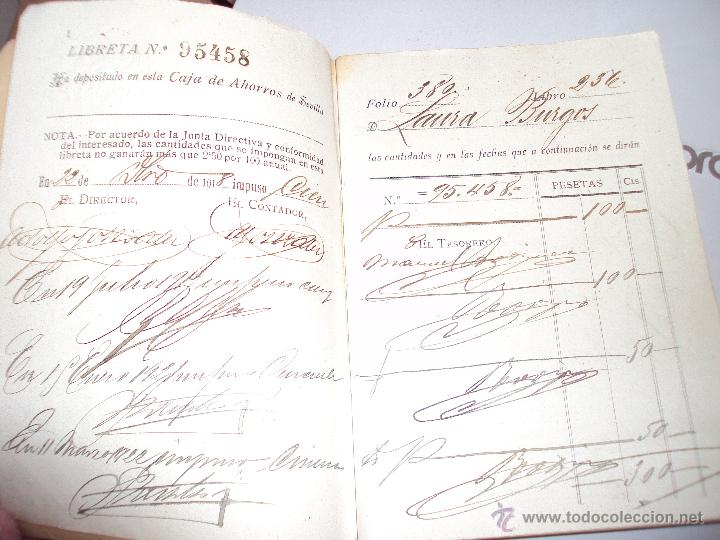 LIBRETA N.º 95458
depositado en esta Caja de Ahorros de Sevilla
NOTA.-Por acuerdo de la Junta Directiva y conformidad
del interesado, las cantidades que se impongan en esta
libreta no ganarán más que 2'50 por 100 anual.
En 22 de 1918, impuso Cien
EL DIRECTOR, EL CONTADOR,
En 19 Julio 19 impuso cien
En 15 Enero 192 impuso Cincuenta
En 11 Marzo 1922 impuso Cincuen
Folio 380 Libro 236
D Laura Burgos
las cantidades y en las fechas que a continuación se dirán
N.º =95.458= PESETAS Cts.
P 100
EL TESORERO
Manuel
100
50
P 50
300
www.todocoleccion.net